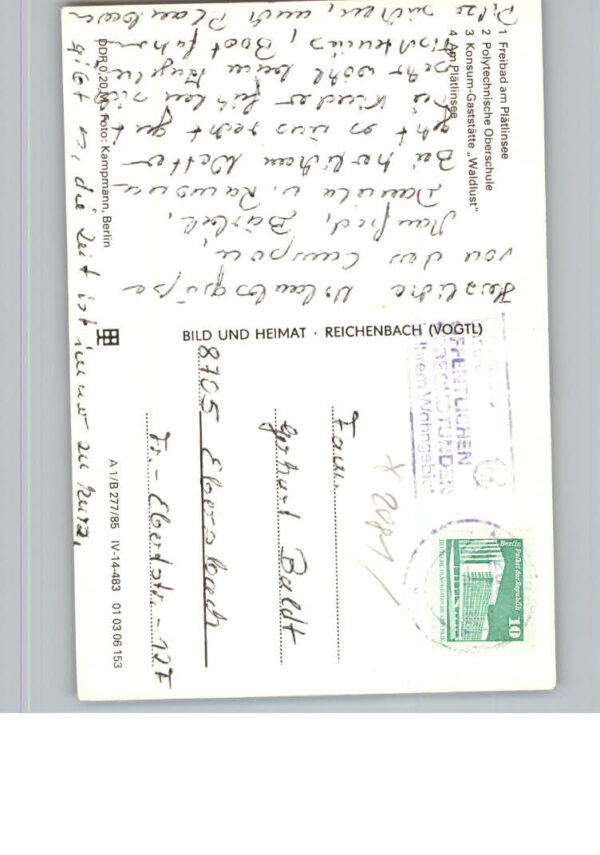 1 Freibad am Plätlinsee
2 Polytechnische Oberschule
3 Konsum-Gaststätte „Waldlust"
4 Am Plätlinsee
Herzliche Urlaubsgrüße
von den Campern,
Manfred, Bärbel,
Daniela u. Ramona
Bei herrlichem Wetter
geht es uns recht gut
die Kinder fühlen sich
sehr wohl beim Angeln
Tischtennis, Boot fahren
Pilze suchen, auch Blaubeeren
gibt es, die Zeit ist immer zu kurz.
DDR 0,20 M Foto: Kampmann, Berlin
BILD UND HEIMAT · REICHENBACH (VOGTL)
A 1/B 277/85 IV-14-483 01 03 06 153
ÖFFENTLICHEN
SPRECHSTUNDEN
Ihrem Wohngebiet
Berlin Palast der Republik
10
DEUTSCHE DEMOKRATISCHE REPUBLIK
Fam.
Gerhard Baldt
8705 Ebersbach
Fr.-Ebertstr.-127